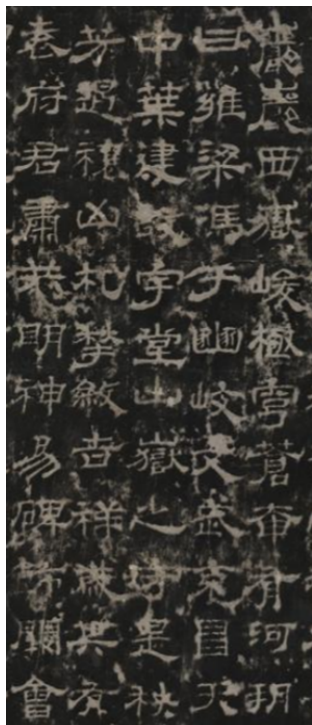 巖巖西嶽峻極穹蒼奄有河朔
曰雍梁馮于豳岐文武克昌天
中葉建設宇堂山嶽之守是秩
芳遏禳凶札揫斂吉祥歲其有
袁府君肅恭明神易碑飾闕會